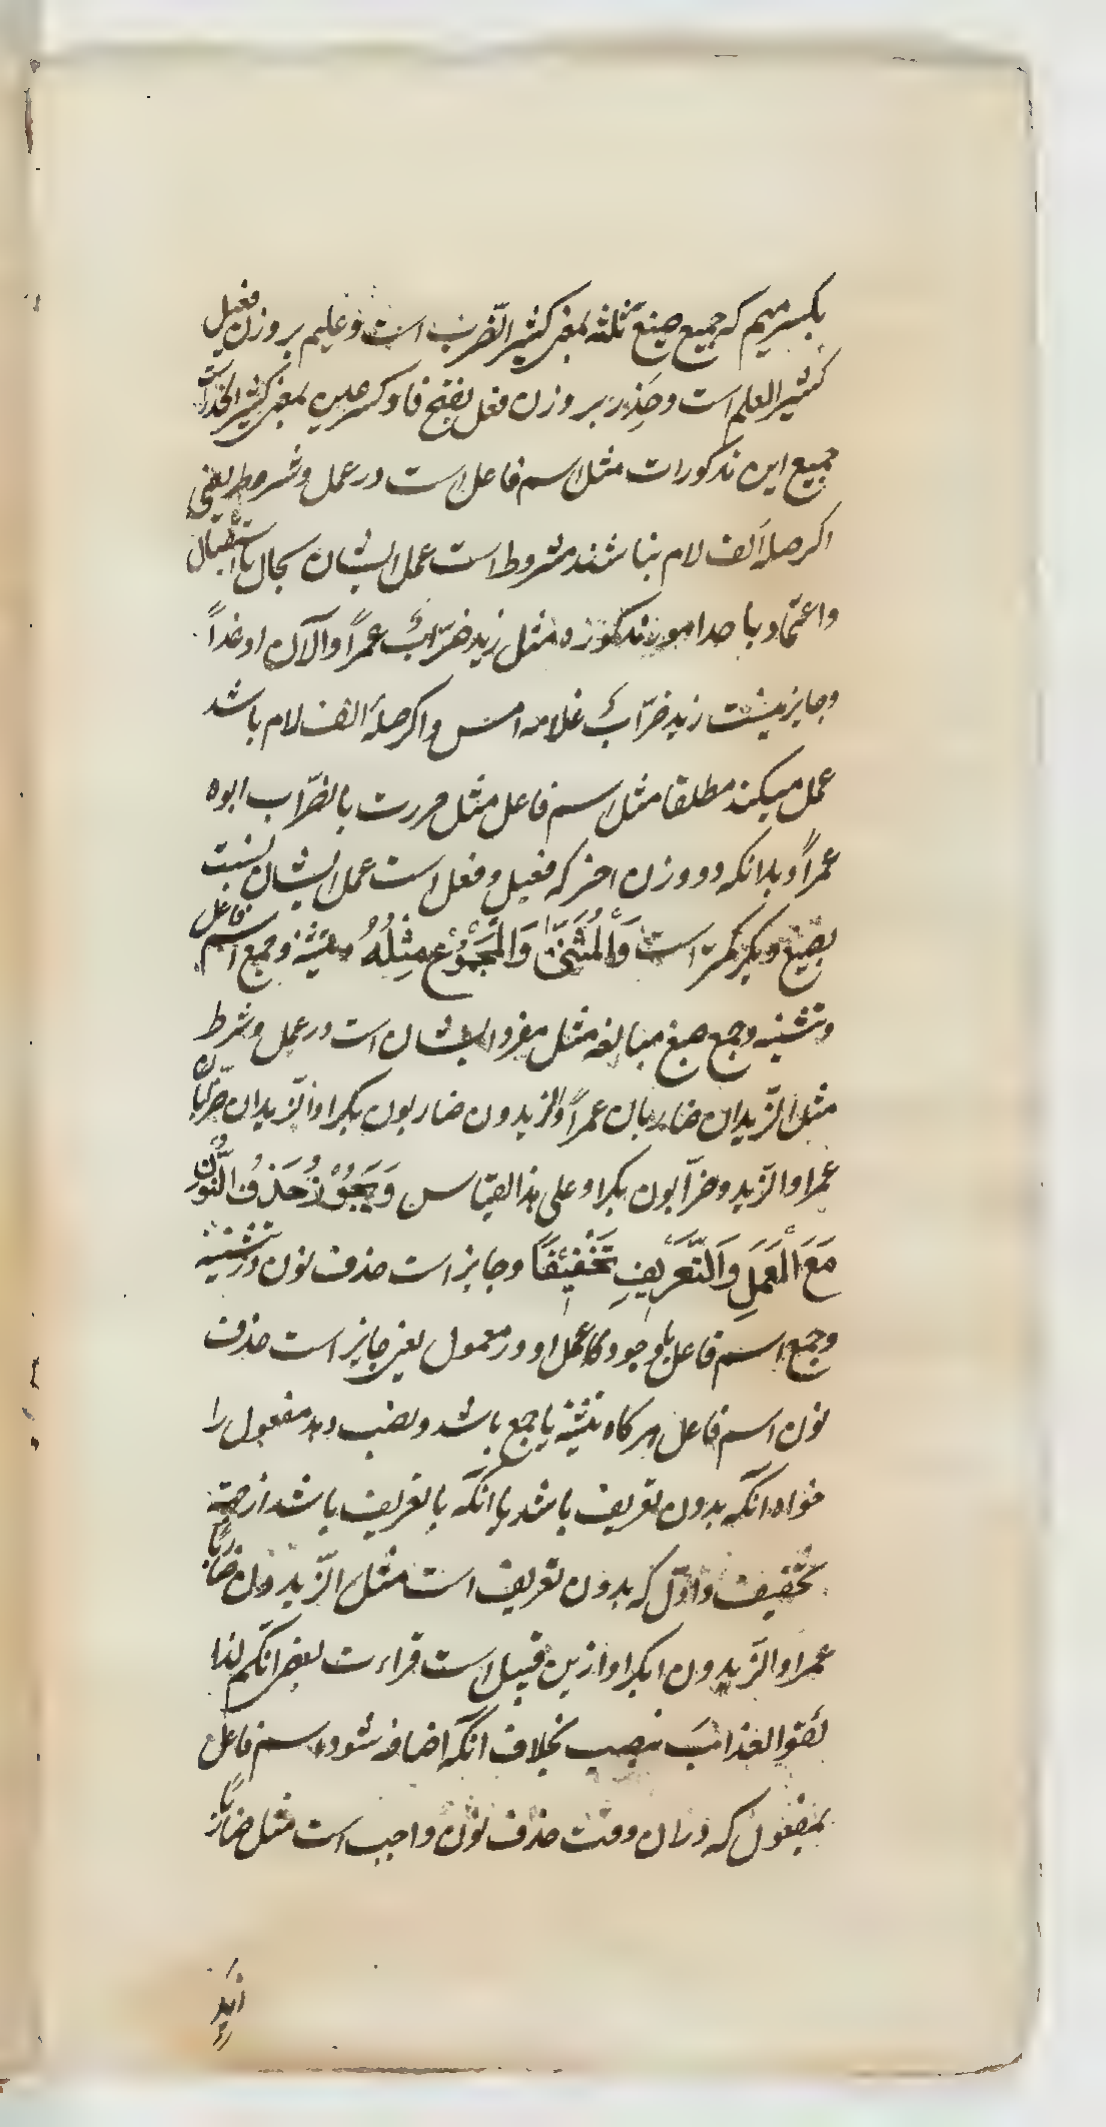 بکسر میم که جمیع صیغ ثلثه بمعنی کثیر الضرب است و علیم بر وزن فعیل
کثیر العلم است و حذر بر وزن فعل بفتح فا و کسر عین بمعنی کثیر الحذر است
جمیع این مذکورات مثل اسم فاعل است در عمل و شروط یعنی
اکر صله الف لام نباشند مشروط است عمل ایشان بحال یا استقبال
و اعتماد باحد امور مذکوره مثل زید ضرّابٌ عمراً والآن او غداً
و جایز نیست زید ضرّابٌ غلامه امس و اکر صلهٔ الف لام باشد
عمل میکند مطلقا مثل اسم فاعل مثل مررت بالضرّاب ابوه
عمراً و بدانکه دو وزن اخر که فعیل و فعل است عمل ایشان نسبت
بصیغ دیکر کمتر است وَالْمُثَنّیٰ وَالْمَجْمُوْعُ مِثْلُهُ و تثنیه و جمع اسم فاعل
و تثنیه و جمع صیغ مبالغه مثل مفرد ایشان است در عمل و شرط
مثل الزّیدان ضاربان عمراً والزیدون ضاربون بکرا والزّیدان ضرّابان
عمرا والزّیدون ضرّابون بکرا و علی هذا القیاس وَیَجُوْزُ حَذْفُ النُّوْنِ
مَعَ الْعَمَلِ وَالتَّعْرِیْفِ تَخْفِیْفًا و جایز است حذف نون در تثنیه
و جمع اسم فاعل با وجود عمل او در معمول یعنی جایز است حذف
نون اسم فاعل هر کاه تثنیه یا جمع باشد و نصب دهد مفعول را
خواه انکه بدون تعریف باشد یا انکه با تعریف باشد از جهة
تخفیف و اوّل که بدون تعریف است مثل الزّیدون ضاربا
عمرا والزّیدون بکرا و ازین قبیل است قراءت بعضی انکم لذا
ئقوا العذابَ بنصب بخلاف انکه اضافه شود اسم فاعل
بمفعول که در ان وقت حذف نون واجب است مثل ضاربا
زیدٍ